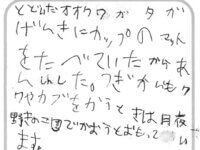 とどらだオオクワガタが
げんきにカップのマット
をたべていたからあ
んしんした。つぎかいもク
ワやカブをかうときは月夜
野きのこ園でかおうとおもってい
ます